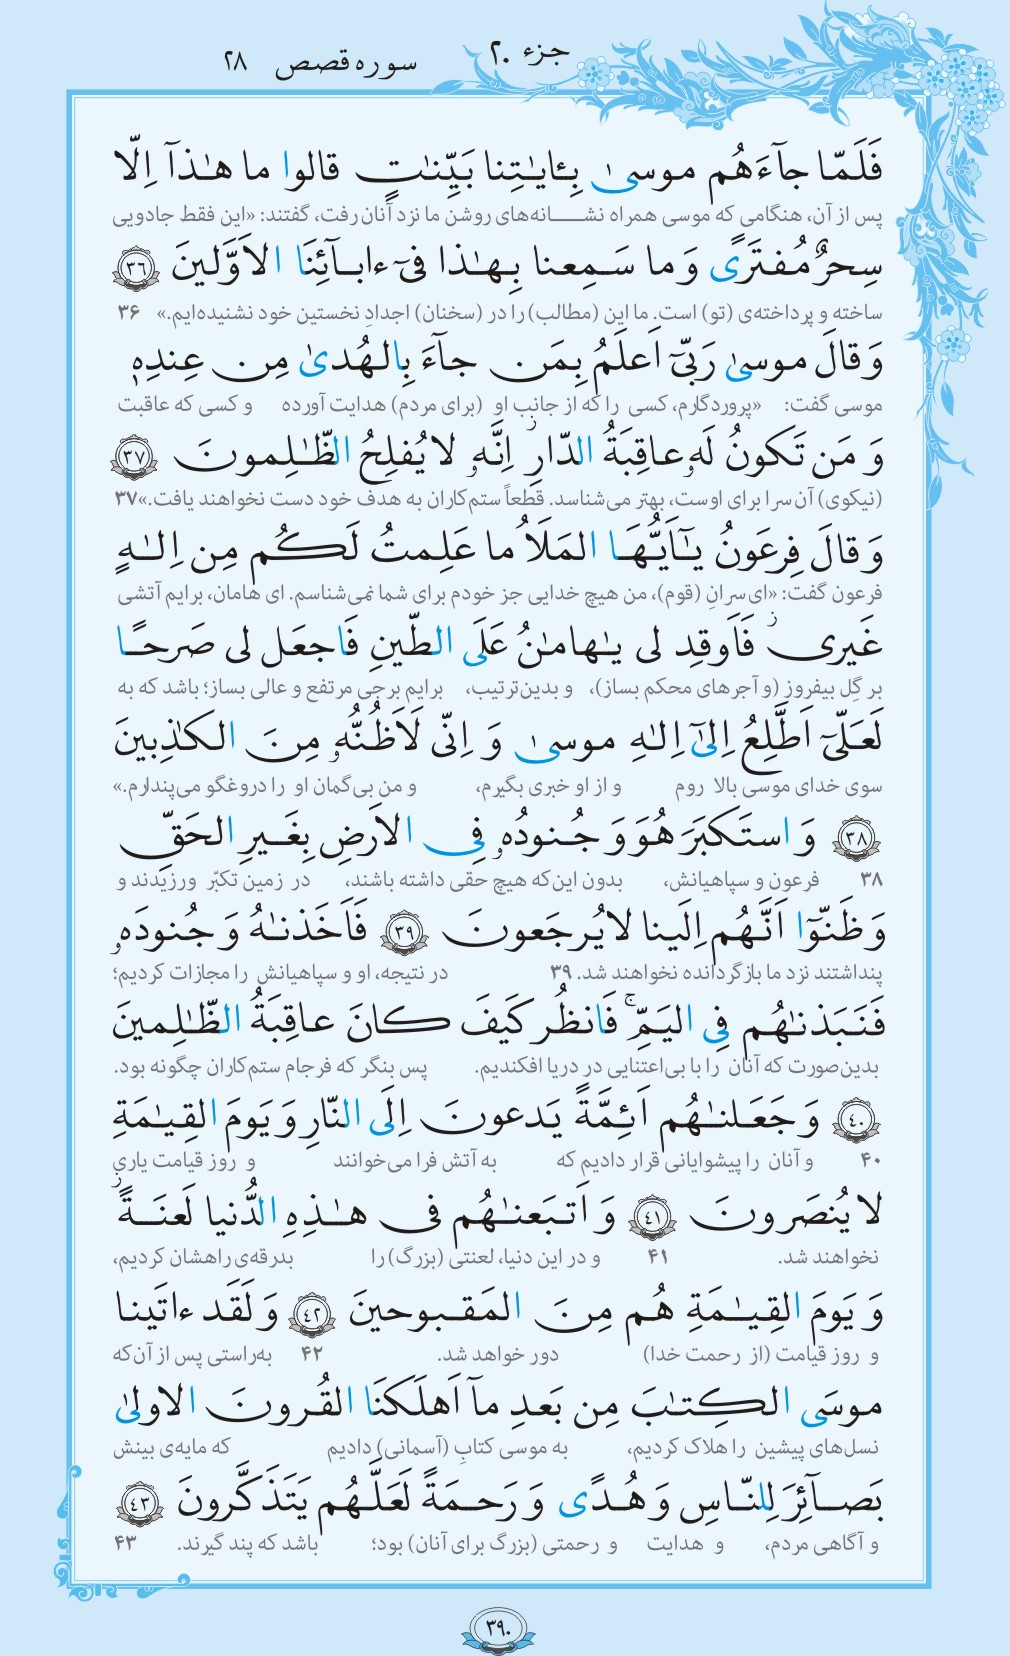 جزء ۲۰
سوره قصص ۲۸
فَلَمّا جآءَهُم موسىٰ بِـٔايٰتِنا بَيِّنٰتٍ قالوا ما هٰذآ اِلّا
پس از آن، هنگامی که موسی همراه نشانه‌های روشن ما نزد آنان رفت، گفتند: «این فقط جادویی
سِحرٌ مُفتَرًى وَ ما سَمِعنا بِهٰذا فىٓ ءابآئِنَا الاَوَّلينَ ﴿٣٦﴾
ساخته و پرداخته‌ی (تو) است. ما این (مطالب) را در (سخنان) اجدادِ نخستین خود نشنیده‌ایم.» ۳۶
وَ قالَ موسىٰ رَبّىٓ اَعلَمُ بِمَن جآءَ بِالهُدىٰ مِن عِندِهٖ
موسی گفت: «پروردگارم، کسی را که از جانب او (برای مردم) هدایت آورده و کسی که عاقبت
وَ مَن تَكونُ لَهٗ عاقِبَةُ الدّارِ ۖ اِنَّهٗ لا يُفلِحُ الظّٰلِمونَ ﴿٣٧﴾
(نیکوی) آن سرا برای اوست، بهتر می‌شناسد. قطعاً ستم‌کاران به هدف خود دست نخواهند یافت.» ۳۷
وَ قالَ فِرعَونُ يٰٓاَيُّهَا المَلَاُ ما عَلِمتُ لَكُم مِن اِلٰهٍ
فرعون گفت: «ای سرانِ (قوم)، من هیچ خدایی جز خودم برای شما نمی‌شناسم. ای هامان، برایم آتشی
غَيرى ز فَاَوقِد لى يٰهامٰنُ عَلَى الطّينِ فَاجعَل لى صَرحًا
بر گِل بیفروز (و آجرهای محکم بساز)، و بدین‌ترتیب، برایم برجی مرتفع و عالی بساز؛ باشد که به
لَعَلّىٓ اَطَّلِعُ اِلىٰٓ اِلٰهِ موسىٰ وَ اِنّى لَاَظُنُّهٗ مِنَ الكٰذِبينَ
سوی خدای موسی بالا روم و از او خبری بگیرم، و من بی‌گمان او را دروغگو می‌پندارم.»
﴿٣٨﴾ وَ استَكبَرَ هُوَ وَ جُنودُهٗ فِى الاَرضِ بِغَيرِ الحَقِّ
۳۸ فرعون و سپاهیانش، بدون این‌که هیچ حقی داشته باشند، در زمین تکبّر ورزیدند و
وَ ظَنّوٓا اَنَّهُم اِلَينا لا يُرجَعونَ ﴿٣٩﴾ فَاَخَذنٰهُ وَ جُنودَهٗ
پنداشتند نزد ما بازگردانده نخواهند شد. ۳۹ در نتیجه، او و سپاهیانش را مجازات کردیم؛
فَنَبَذنٰهُم فِى اليَمِّ ۚ فَانظُر كَيفَ كانَ عاقِبَةُ الظّٰلِمينَ
بدین‌صورت که آنان را با بی‌اعتنایی در دریا افکندیم. پس بنگر که فرجام ستم‌کاران چگونه بود.
﴿٤٠﴾ وَ جَعَلنٰهُم اَئِمَّةً يَدعونَ اِلَى النّارِ وَ يَومَ القِيٰمَةِ
۴۰ و آنان را پیشوایانی قرار دادیم که به آتش فرا می‌خوانند و روز قیامت یاری
لا يُنصَرونَ ﴿٤١﴾ وَ اَتبَعنٰهُم فى هٰذِهِ الدُّنيا لَعنَةً ۖ
نخواهند شد. ۴۱ و در این دنیا، لعنتی (بزرگ) را بدرقه‌ی راهشان کردیم،
وَ يَومَ القِيٰمَةِ هُم مِنَ المَقبوحينَ ﴿٤٢﴾ وَ لَقَد ءاتَينا
و روز قیامت (از رحمت خدا) دور خواهد شد. ۴۲ به‌راستی پس از آن‌که
موسَى الكِتٰبَ مِن بَعدِ مآ اَهلَكنَا القُرونَ الاولىٰ
نسل‌های پیشین را هلاک کردیم، به موسی کتابِ (آسمانی) دادیم که مایه‌ی بینش
بَصآئِرَ لِلنّاسِ وَ هُدًى وَ رَحمَةً لَعَلَّهُم يَتَذَكَّرونَ ﴿٤٣﴾
و آگاهی مردم، و هدایت و رحمتی (بزرگ برای آنان) بود؛ باشد که پند گیرند. ۴۳
۳۹۰